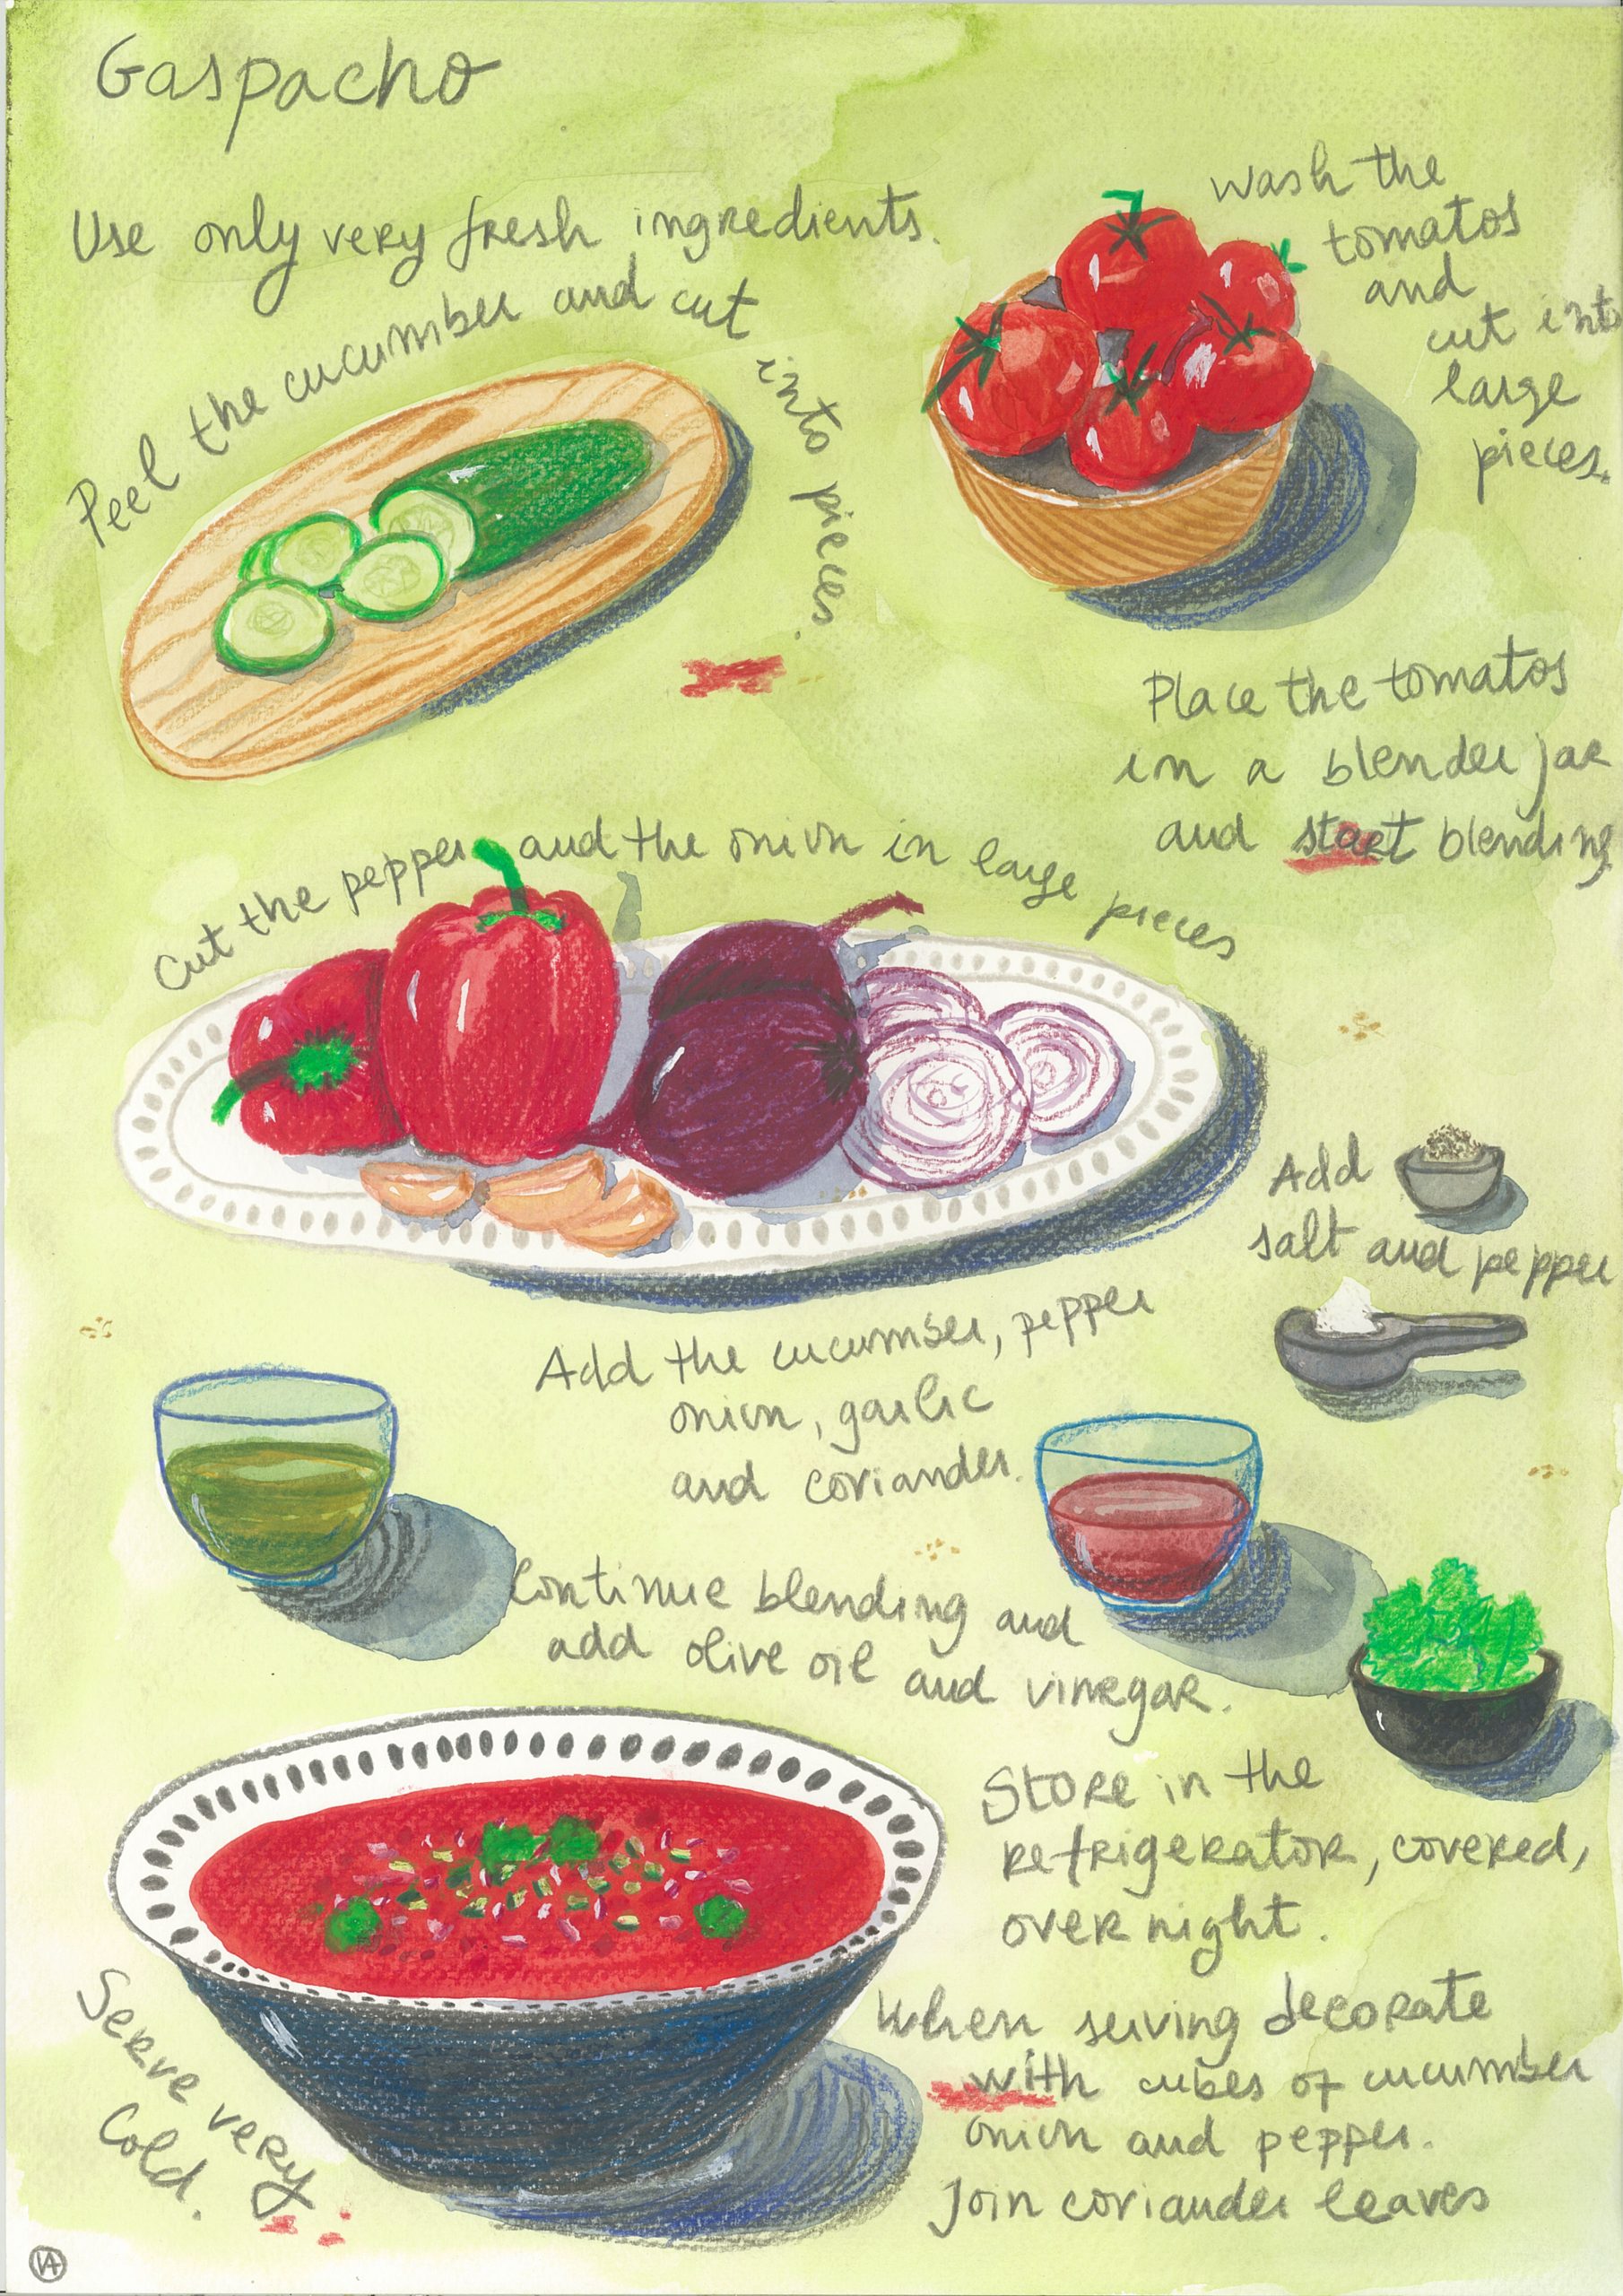 Gaspacho
Use only very fresh ingredients.
Peel the cucumber and cut into pieces.
Wash the
tomatos
and
cut into
large
pieces.
Place the tomatos
in a blender jar
and start blending
Cut the pepper and the onion in large pieces
Add
salt and pepper
Add the cucumber, pepper
onion, garlic
and coriander.
Continue blending and
add olive oil and vinegar.
Store in the
refrigerator, covered,
over night.
When serving decorate
with cubes of cucumber
onion and pepper.
Join coriander leaves
Serve very
Cold.